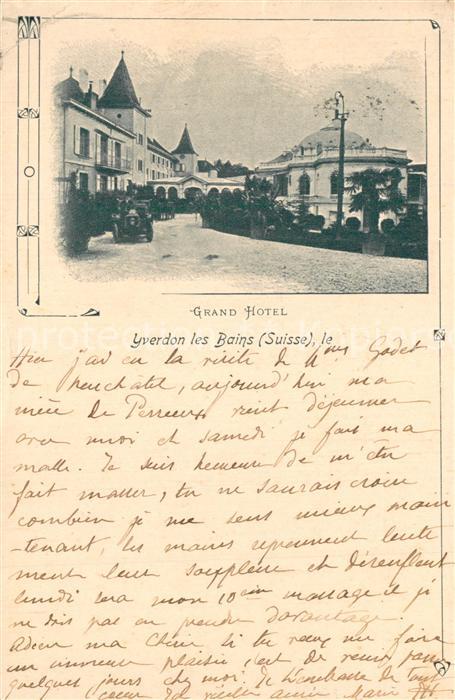 GRAND HOTEL
Yverdon les Bains (Suisse), le
Hier j'ai eu la visite de Mme Godet
de Neuchâtel, aujourd'hui ma
nièce de Perreux vient déjeuner
avec moi et samedi je fais ma
malle. Je suis heureuse de m'être
fait masser, tu ne saurais croire
combien je me sens mieux main
-tenant, les mains reprennent lente
ment leur souplesse et désenflent
lundi sera mon 10ème massage et je
ne dois pas en prendre davantage.
Adieu ma chère si tu veux me faire
un immense plaisir, c'est de venir passer
quelques jours chez moi. Je t'embrasse de tout
cœur ta vieille amie